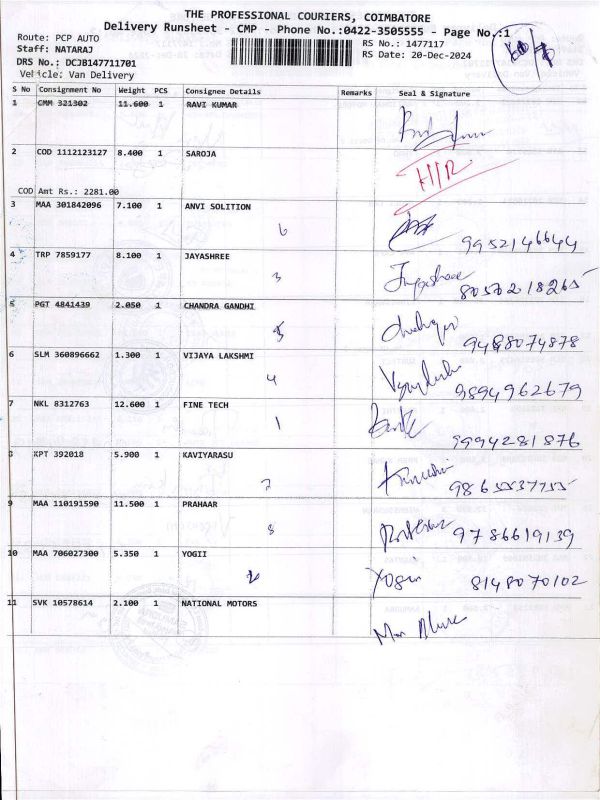 THE PROFESSIONAL COURIERS, COIMBATORE
Delivery Runsheet - CMP - Phone No.:0422-3505555 - Page No.:1
Route: PCP AUTO
RS No.: 1477117
Staff: NATARAJ
RS Date: 20-Dec-2024
DRS No.: DCJB147711701
Vehicle: Van Delivery
S No Consignment No Weight PCS Consignee Details Remarks Seal & Signature
1 CMM 321302 11.600 1 RAVI KUMAR
2 COD 1112123127 8.400 1 SAROJA
H/R
COD Amt Rs.: 2281.00
3 MAA 301842096 7.100 1 ANVI SOLITION
6 9952146644
4 TRP 7859177 8.100 1 JAYASHREE
3 Jayashree 8050218265
5 PGT 4841439 2.050 1 CHANDRA GANDHI
5 9488074878
6 SLM 360896662 1.300 1 VIJAYA LAKSHMI
4 9894962679
7 NKL 8312763 12.600 1 FINE TECH
1 9994281876
8 KPT 392018 5.900 1 KAVIYARASU
7 9865537755
9 MAA 110191590 11.500 1 PRAHAAR
8 9786619139
10 MAA 706027300 5.350 1 YOGII
2 Yogin 8148070102
11 SVK 10578614 2.100 1 NATIONAL MOTORS